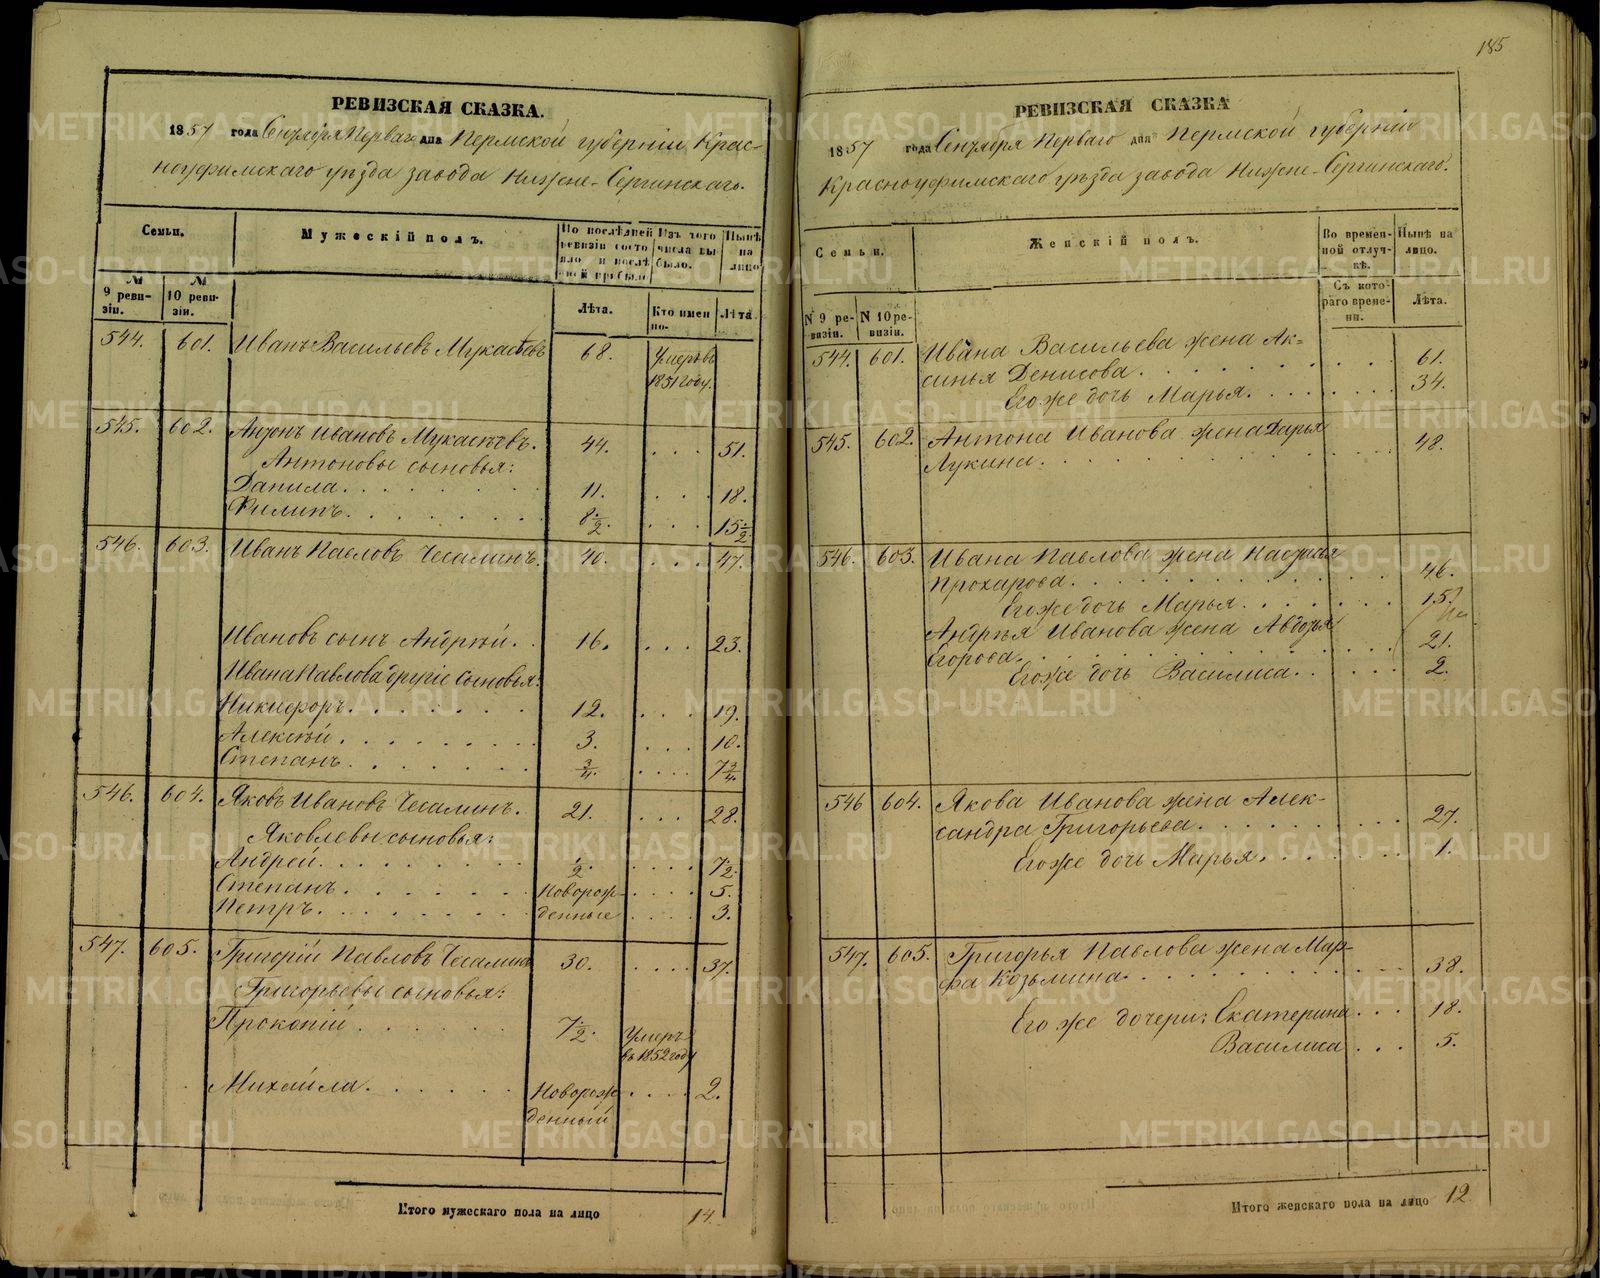 185
РЕВИЗСКАЯ СКАЗКА.
1857 года Сентября Перваго дня Пермской губерніи Крас-
ноуфимскаго уѣзда завода Нижне-Сергинскаго.
Семьи.
Мужескій полъ.
По послѣдней ревизіи состояло и послѣ оной прибыло
Изъ того числа выбыло.
Нынѣ на лицо
№ 9 ревизіи.
№ 10 ревизіи.
Лѣта.
Кто именно.
Лѣта
544. 601. Иванъ Васильевъ Мукасѣевъ 68. Умеръ въ
1851 году.
545. 602. Антонъ Ивановъ Мукасѣевъ. 44. . . . 51.
Антоновы сыновья:
Данила. 11. . . . 18.
Филипъ. 8 1/2. . . . 15 1/2.
546. 603. Иванъ Павловъ Чесалинъ. 40. . . . 47.
Ивановъ сынъ Андрѣй. 16. . . . 23.
Ивана Павлова другіе сыновья:
Никифоръ. 12. . . . 19.
Алексѣй. 3. . . . 10.
Степанъ. 3/4. . . . 7 3/4.
546. 604. Яковъ Ивановъ Чесалинъ. 21. . . . 28.
Яковлевы сыновья:
Андрей. 1/2. . . . 7 1/2.
Степанъ. Новорож- . . . 5.
Петръ. денные . . . 3.
547. 605. Григорій Павловъ Чесалинъ 30. . . . 37.
Григорьевы сыновья:
Прокопій 7 1/2. Умеръ
въ 1852 году
Михайла. Новорож- . . . 2.
денный
Итого мужескаго пола на лицо 14.
РЕВИЗСКАЯ СКАЗКА
1857 года Сентября Перваго дня Пермской губерніи
Красноуфимскаго уѣзда завода Нижне-Сергинскаго.
Семьи.
Женскій полъ.
Во временной отлучкѣ.
Нынѣ на лицо.
N 9 ревизіи.
N 10 ревизіи.
Съ котораго времени.
Лѣта.
544. 601. Ивана Васильева жена Ак=
синья Денисова. 61.
Его же дочь Марья. 34.
545. 602. Антона Иванова жена Дарья
Лукина. 48.
546. 603. Ивана Павлова жена Настасья
Прохарова. 46.
Его же дочь Марья. 15.
Андрѣя Иванова жена Авдотья
Егорова. 21.
Его же дочь Василиса. 2.
546 604. Якова Иванова жена Алек-
сандра Григорьева. 27.
Его же дочь Марья. 1.
547. 605. Григорья Павлова жена Мар-
фа Козьмина. 38.
Его же дочери: Екатерина 18.
Василиса 5.
Итого женскаго пола на лицо 12
METRIKI.GASO-URAL.RU